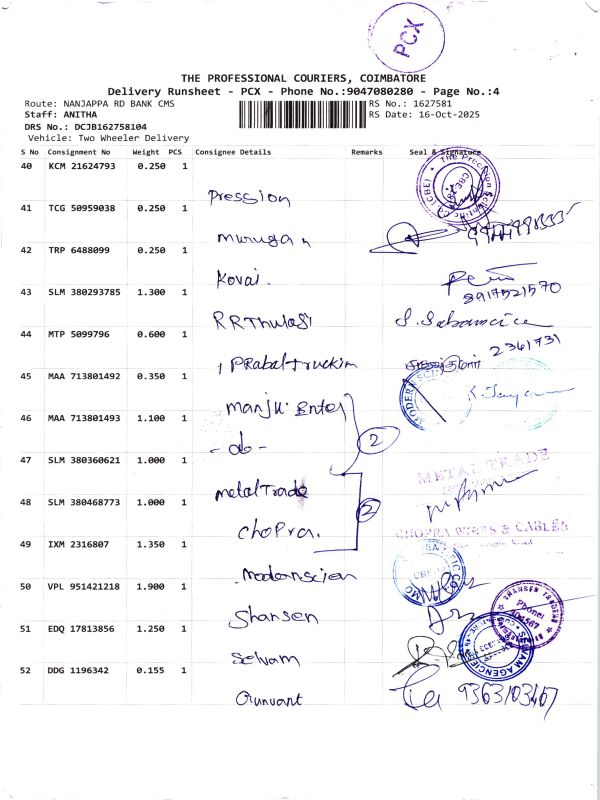 PCX
THE PROFESSIONAL COURIERS, COIMBATORE
Delivery Runsheet - PCX - Phone No.:9047080280 - Page No.:4
Route: NANJAPPA RD BANK CMS RS No.: 1627581
Staff: ANITHA RS Date: 16-Oct-2025
DRS No.: DCJB162758104
Vehicle: Two Wheeler Delivery
S No Consignment No Weight PCS Consignee Details Remarks Seal & Signature
40 KCM 21624793 0.250 1
Pression
41 TCG 50959038 0.250 1
murugan
42 TRP 6488099 0.250 1
Kovai.
8917521570
43 SLM 380293785 1.300 1
RRThulasi
44 MTP 5099796 0.600 1
2361731
Prabal Truckim
45 MAA 713801492 0.350 1
manju. Enter
46 MAA 713801493 1.100 1
- do - 2
47 SLM 380360621 1.000 1
METAL TRADE
metal Trade
48 SLM 380468773 1.000 1
2
chopra. CHOPRA WIRES & CABLES
49 IXM 2316807 1.350 1
modernscien
50 VPL 951421218 1.900 1
Shansen SHANSEN TRADERS
51 EDQ 17813856 1.250 1
Selvam SELVAM AGENCIES
52 DDG 1196342 0.155 1
Gunvant 9363103467